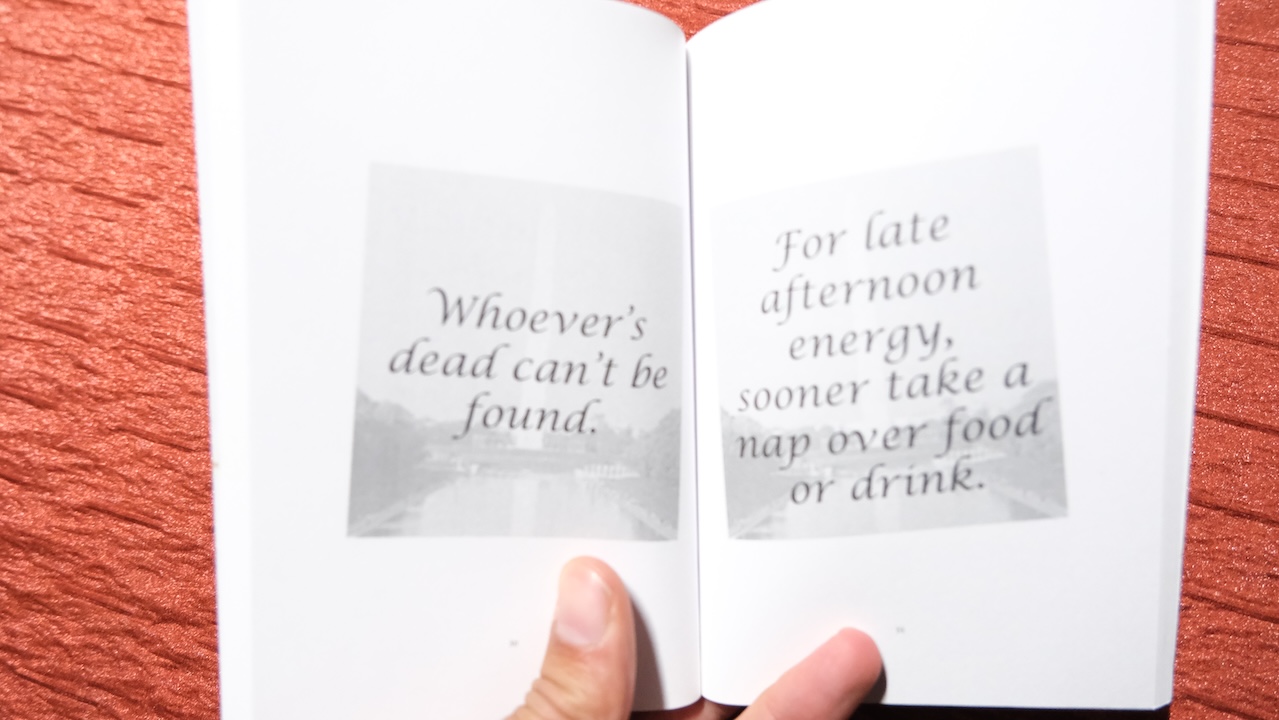 Whoever's
dead can't be
found.
For late
afternoon
energy,
sooner take a
nap over food
or drink.